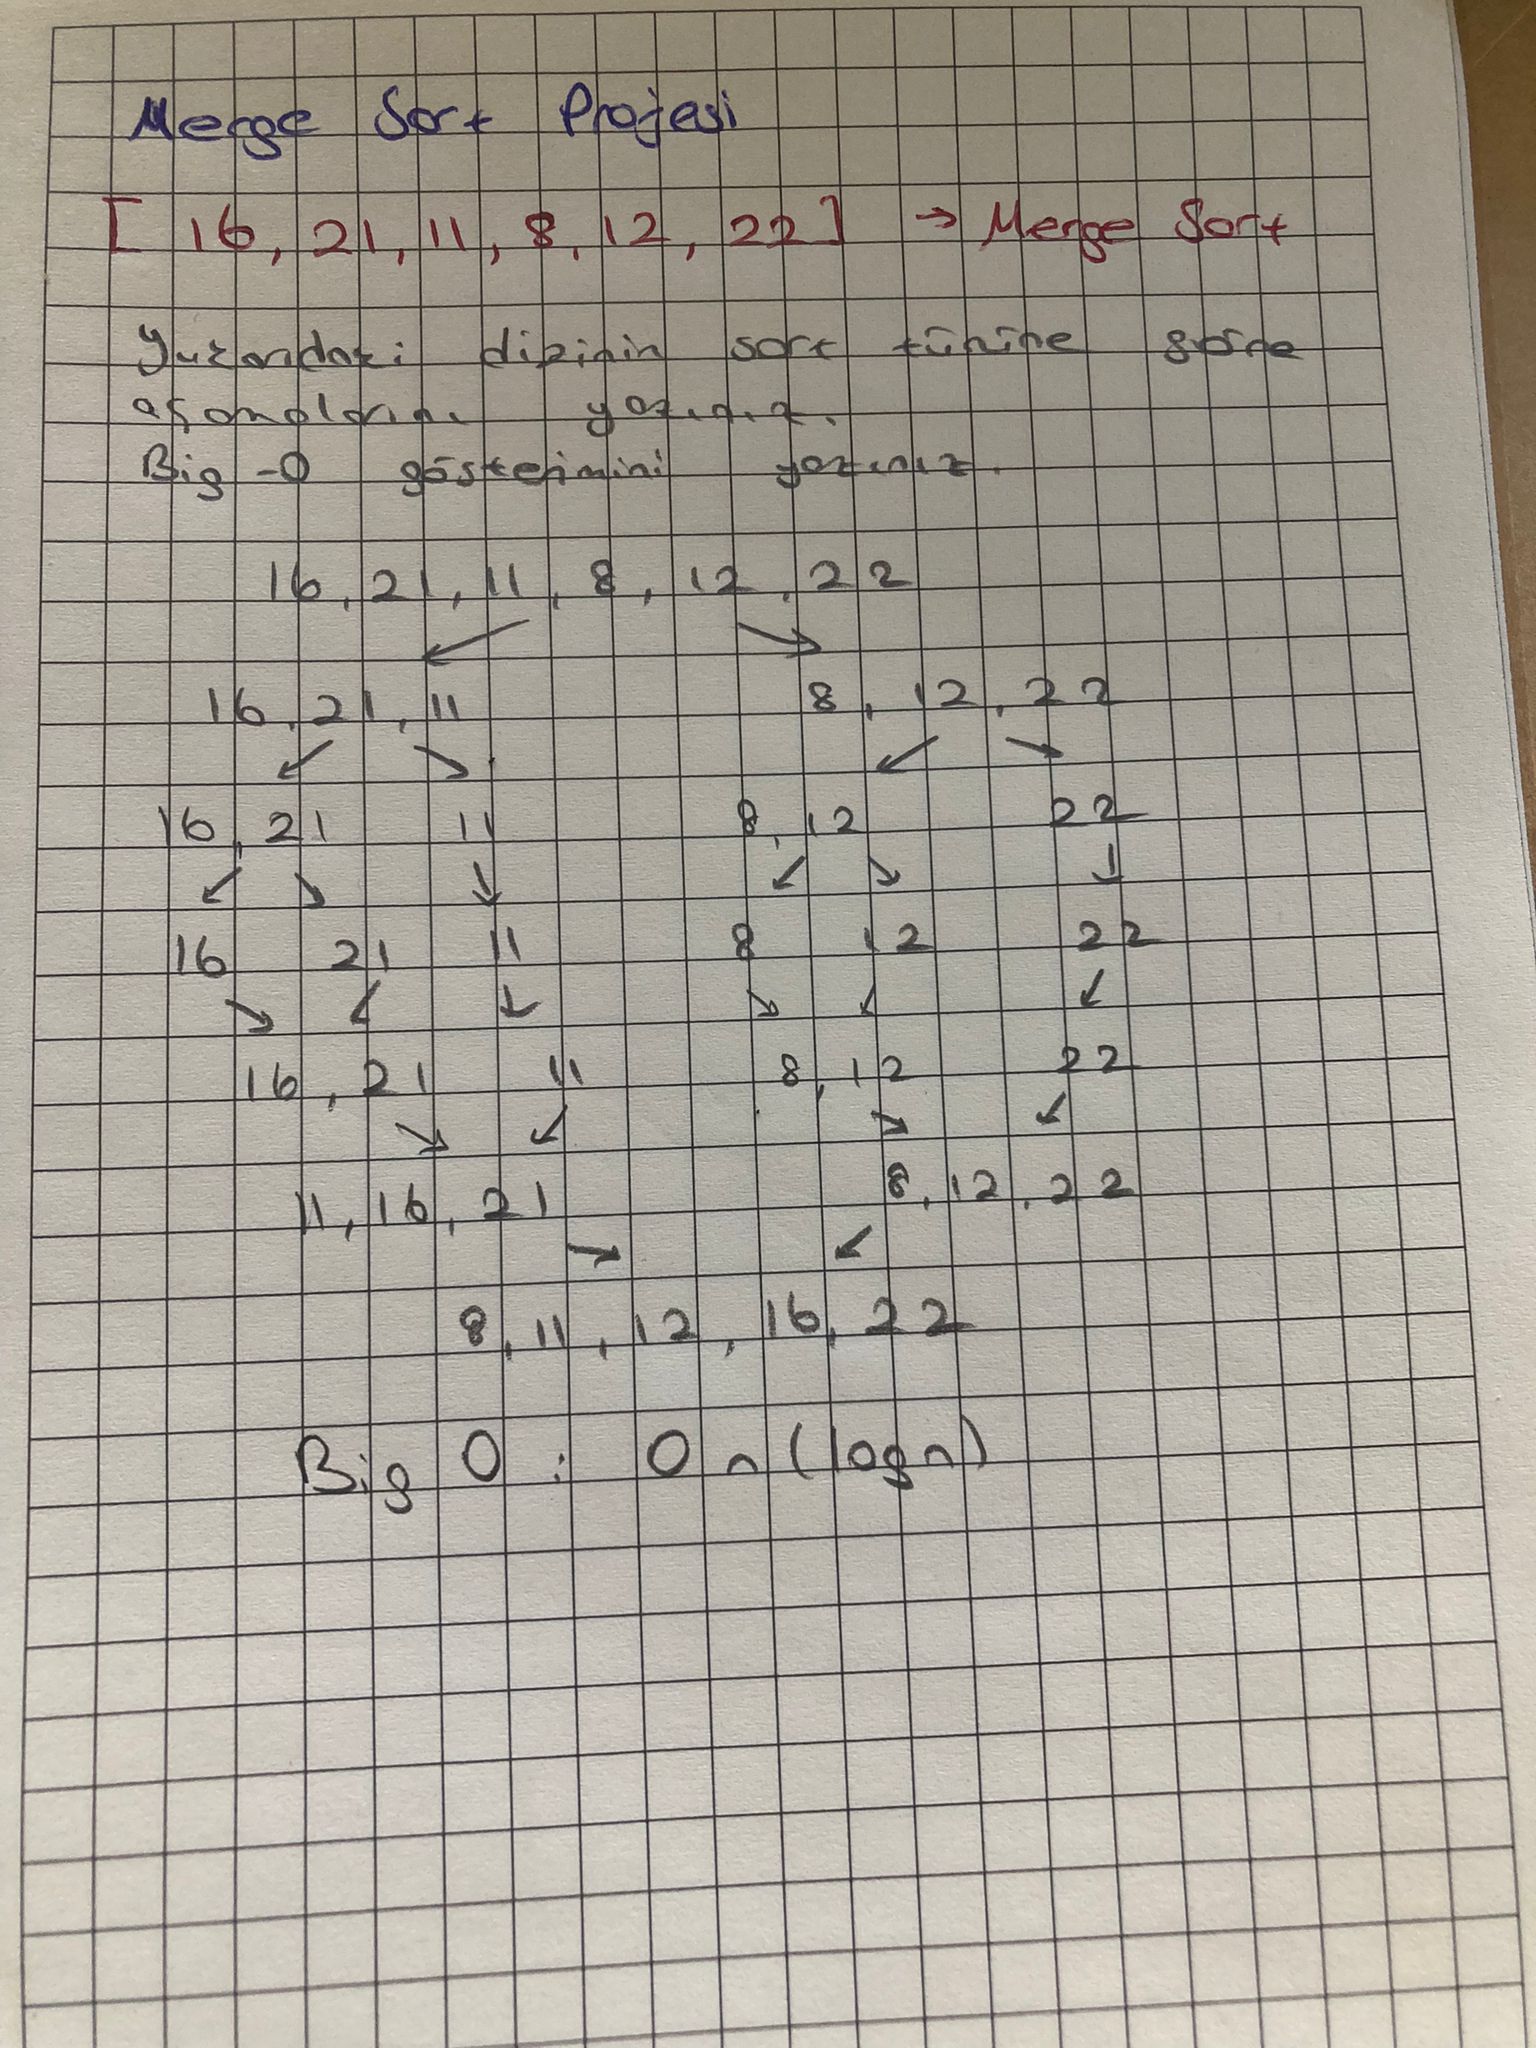 Merge Sort Projesi
[ 16, 21, 11, 8, 12, 22 ] → Merge Sort
Yukarıdaki dizinin sort türüne göre
aşamalarını yazınız.
Big-O gösterimini yazınız.
16, 21, 11, 8, 12, 22
16, 21, 11 8, 12, 22
16, 21 11 8, 12 22
16 21 11 8 12 22
16, 21 11 8, 12 22
11, 16, 21 8, 12, 22
8, 11, 12, 16, 22
Big O : O n (logn)